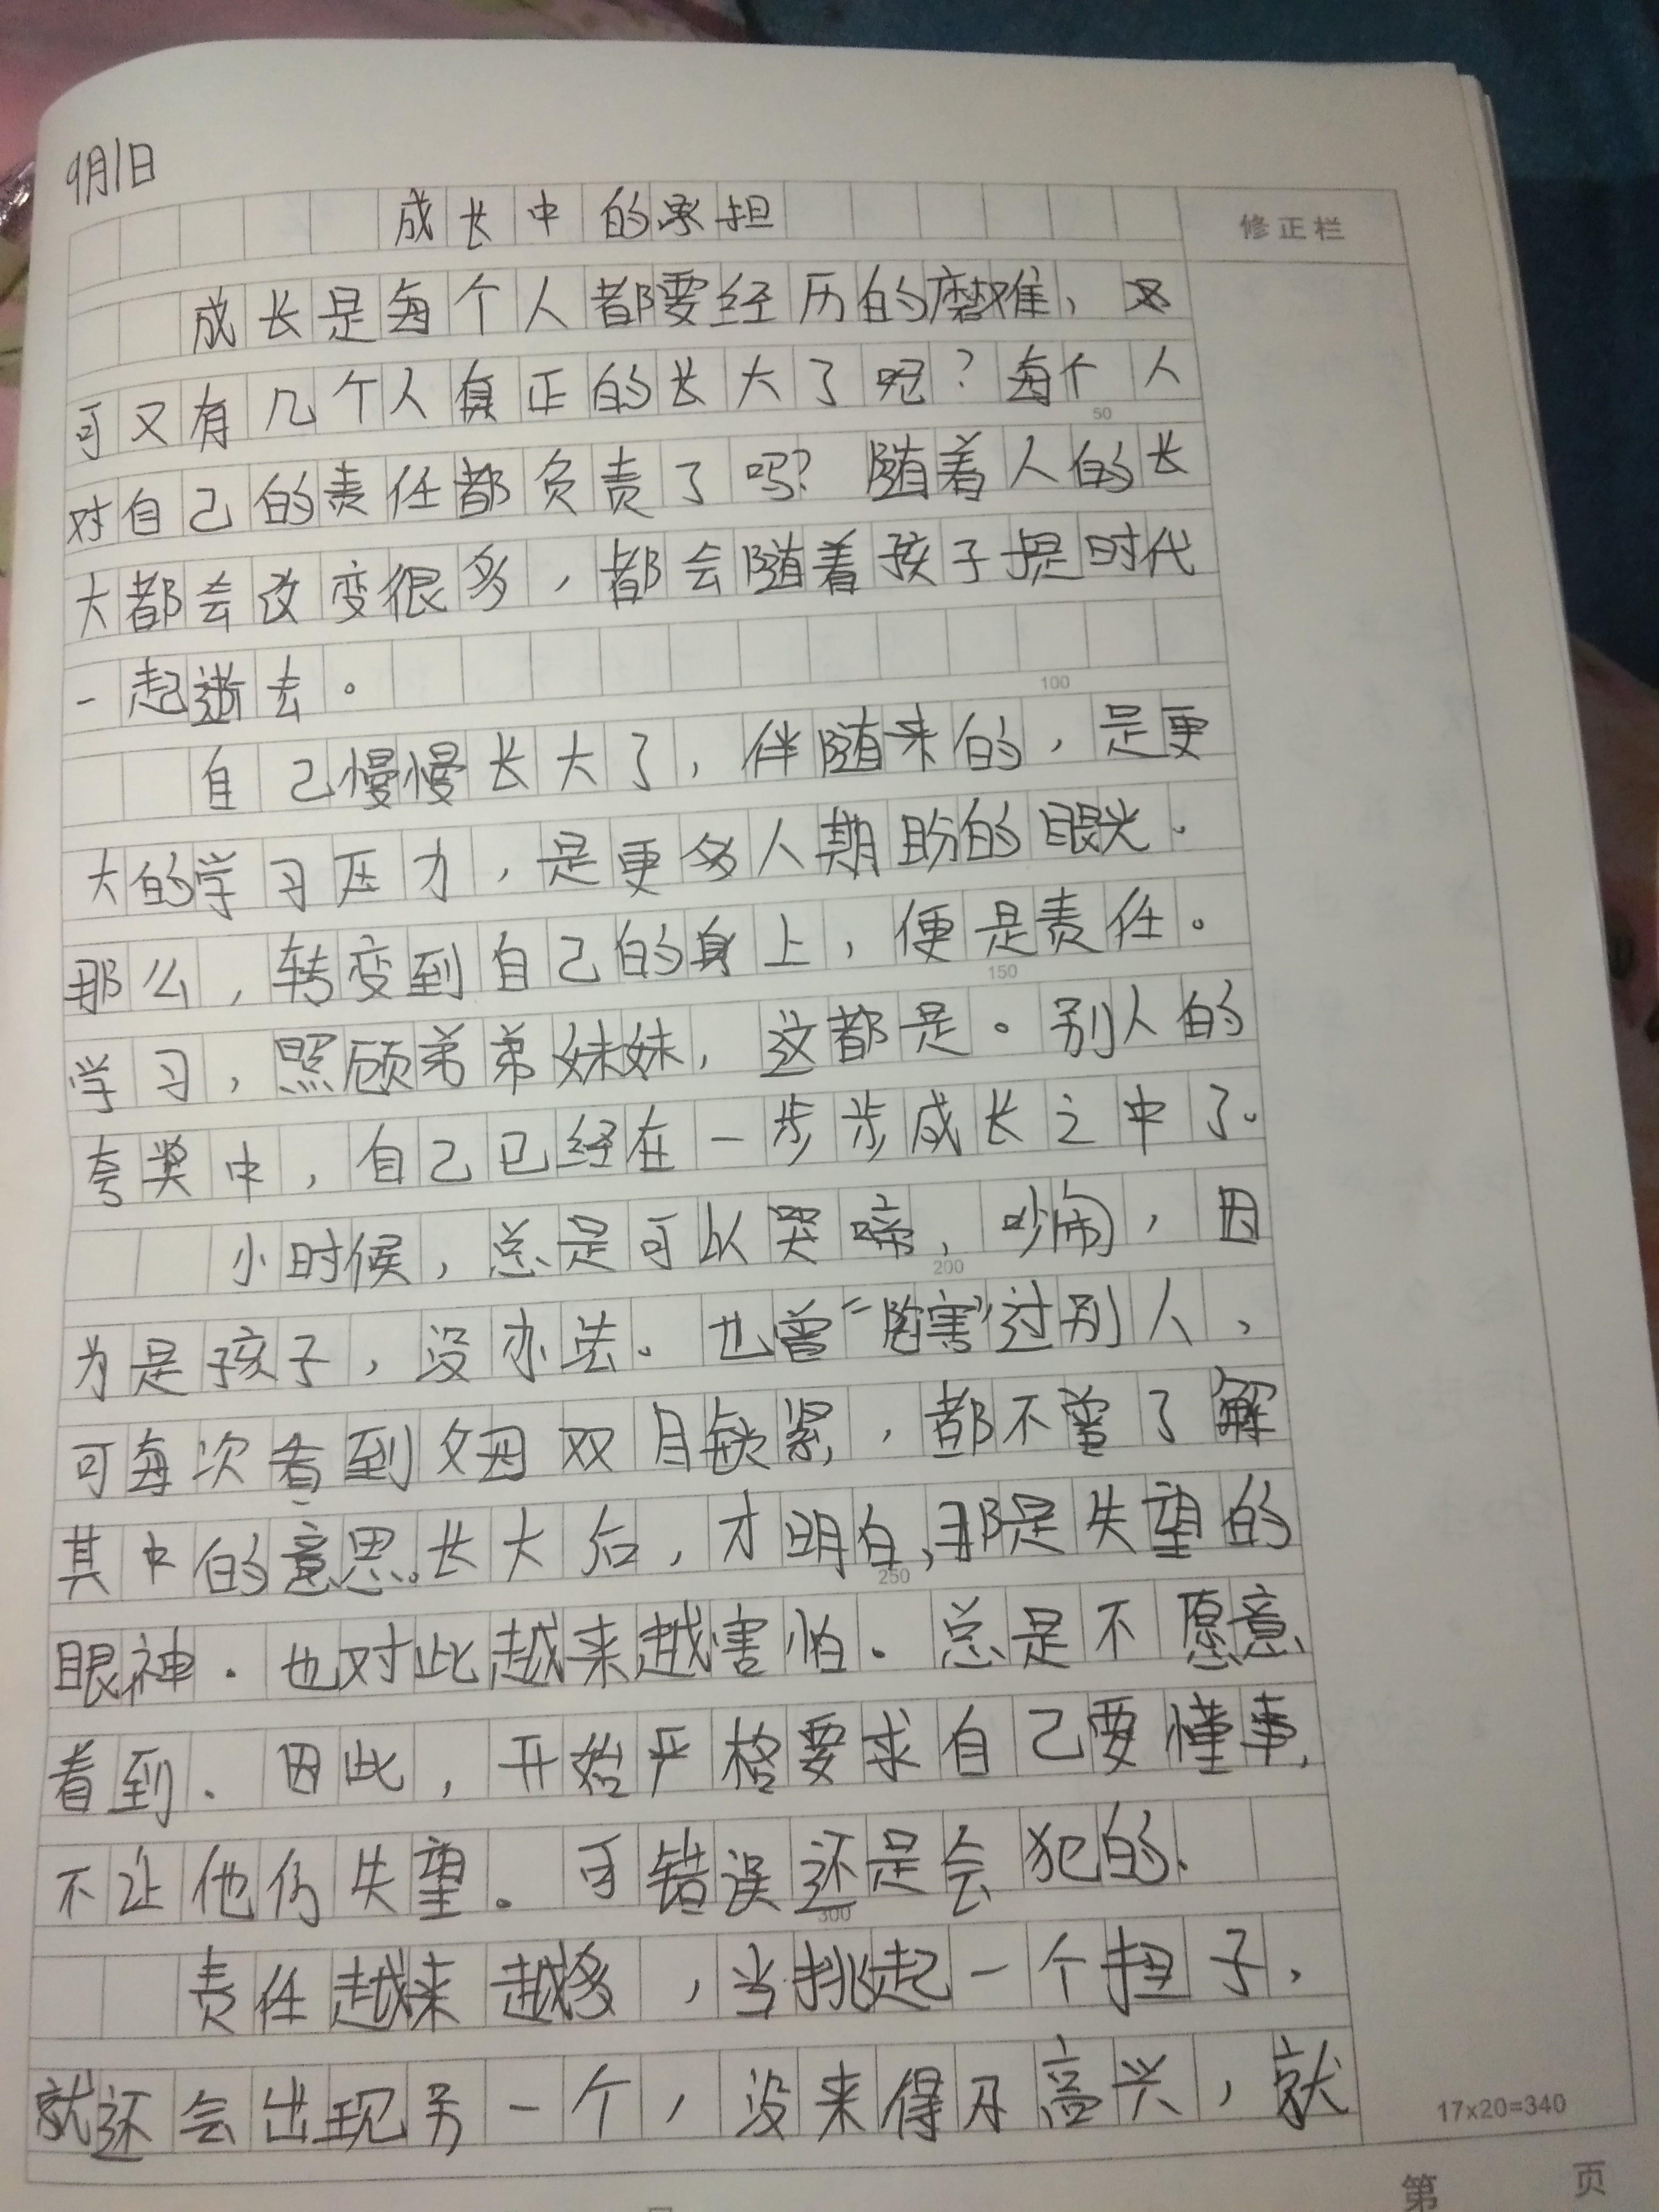 9月1日
成长中的承担
修正栏
成长是每个人都要经历的磨难，
可又有几个人真正的长大了呢？每个人
50
对自己的责任都负责了吗？随着人的长
大都会改变很多，都会随着孩子提时代
一起逝去。
100
自己慢慢长大了，伴随来的，是更
大的学习压力，是更多人期盼的眼光。
那么，转变到自己的身上，便是责任。
150
学习，照顾弟弟妹妹，这都是。别人的
夸奖中，自己已经在一步步成长之中了。
小时候，总是可以哭啼，吵闹，因
200
为是孩子，没办法。也曾“陷害”过别人，
可每次看到父母双目皱紧，都不曾了解
其中的意思。长大后，才明白，那是失望的
250
眼神．也对此越来越害怕．总是不愿意
看到．因此，开始严格要求自己要懂事，
不让他们失望。可错误还是会犯的．
300
责任越来越多，当挑起一个担子，
就还会出现另一个，没来得及高兴，就
17x20=340
第 页